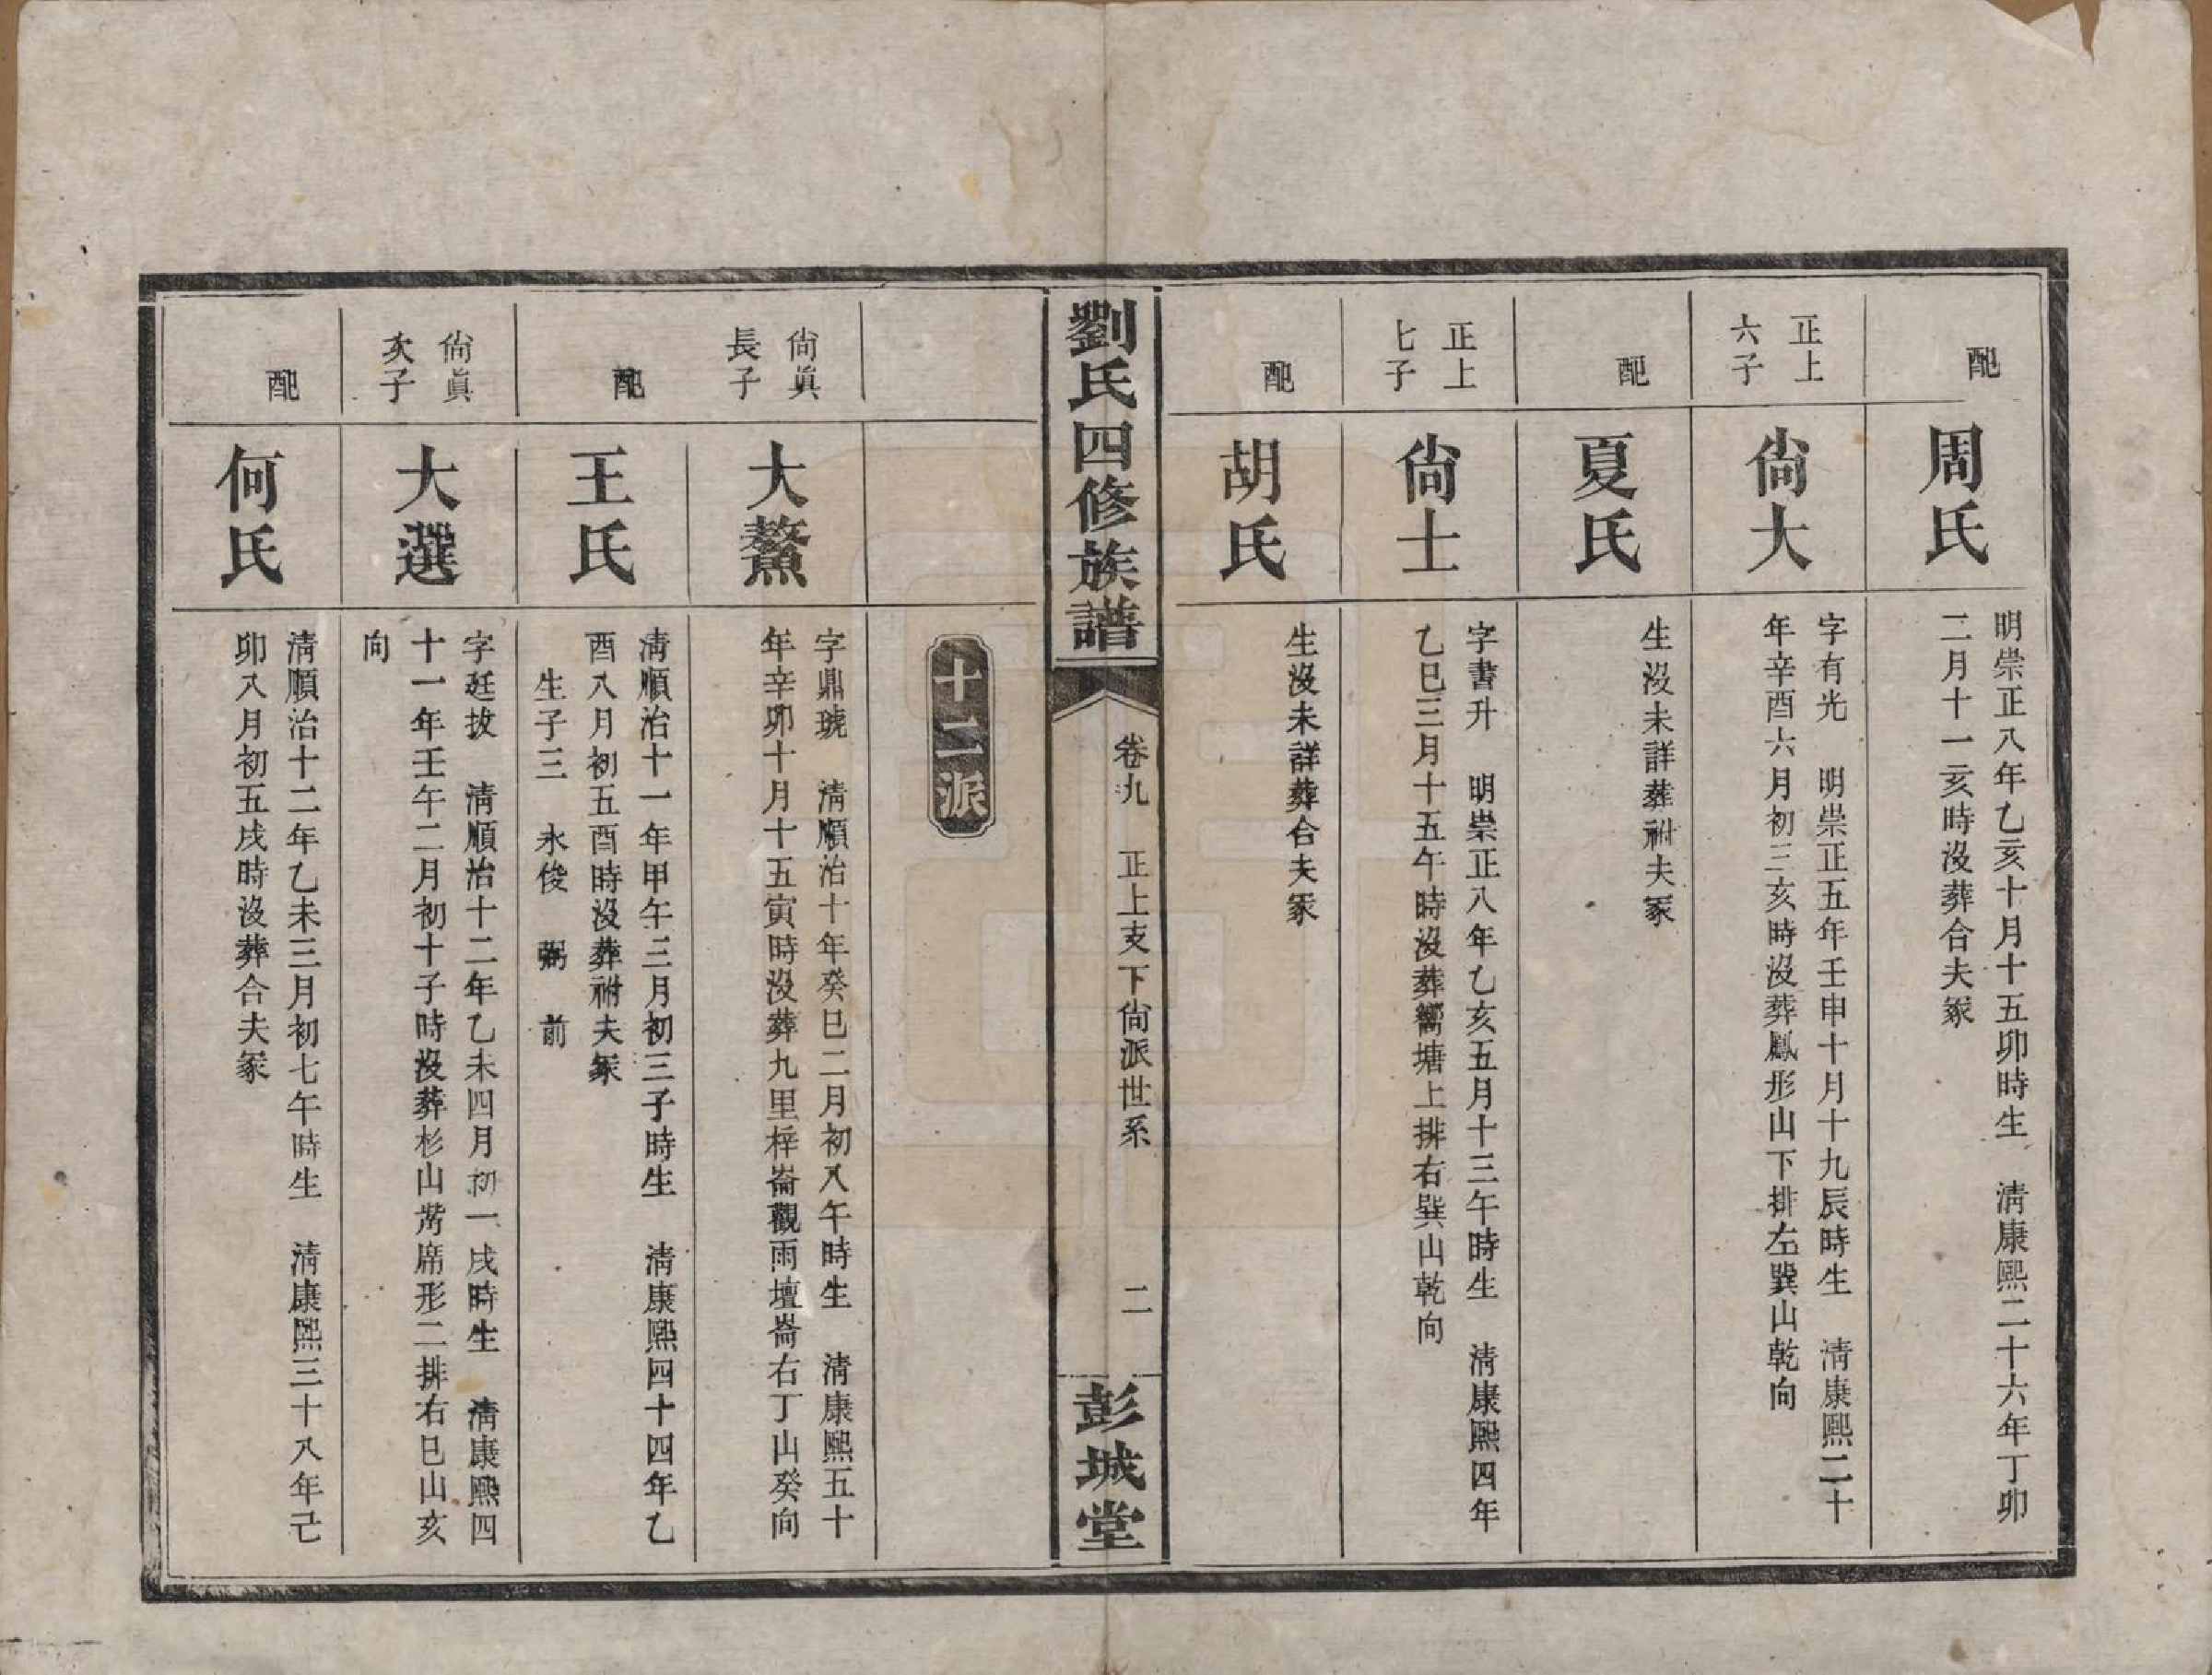 配
周氏
明崇正八年乙亥十月十五卯時生　淸康熙二十六年丁卯
二月十一亥時沒葬合夫冢
正上
六子
尙大
字有光　明崇正五年壬申十月十九辰時生　淸康熙二十
年辛酉六月初三亥時沒葬鳳形山下排左巽山乾向
配
夏氏
生沒未詳葬祔夫冢
正上
七子
尙士
字書升　明崇正八年乙亥五月十三午時生　淸康熙四年
乙巳三月十五午時沒葬嚮塘上排右巽山乾向
配
胡氏
生沒未詳葬合夫冢
劉氏四修族譜
卷九　正上支下尙派世系
二
彭城堂
十二派
尙眞
長子
大鰲
字鼎琥　淸順治十年癸巳二月初八午時生　淸康熙五十
年辛卯十月十五寅時沒葬九里梓崙觀雨壇崙右丁山癸向
配
王氏
淸順治十一年甲午三月初三子時生　淸康熙四十四年乙
酉八月初五酉時沒葬祔夫冢
生子三　永俊　弼　前
尙眞
次子
大選
字廷拔　淸順治十二年乙未四月初一戌時生　淸康熙四
十一年壬午二月初十子時沒葬杉山凿席形二排右巳山亥
向
配
何氏
淸順治十二年乙未三月初七午時生　淸康熙三十八年己
卯八月初五戌時沒葬合夫冢